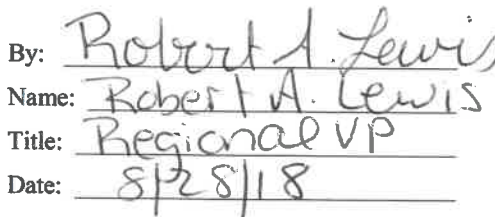 By: Robert A. Lewis
Name: Robert A. Lewis
Title: Regional VP
Date: 8/28/18